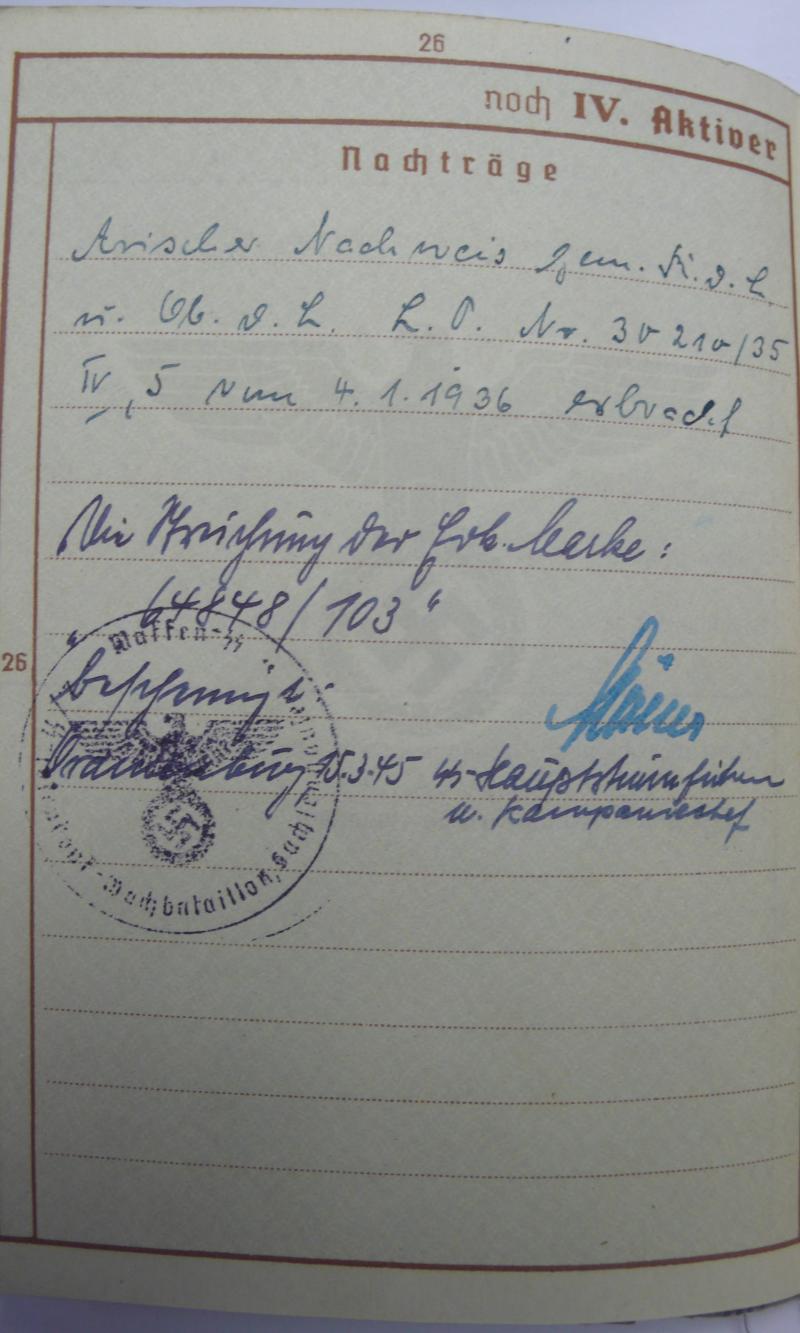 26
noch IV. Aktiver
Nachträge
Arischer Nachweis gem. K.d.L.
u. Ob. d. L. L.P. Nr. 30210/35
IV, 5 vom 4.1.1936 erbracht
Die Streichung der Erk. Marke:
„64848/103“
26
Waffen-SS
bescheinigt:
Oranienburg 15.3.45 SS-Hauptsturmführer
u. Kompaniechef
Wachbataillon, Sachsenhausen